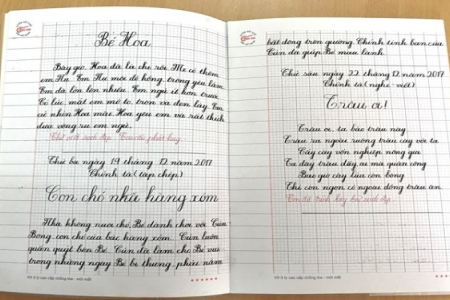 Bé Hoa
Bây giờ, Hoa đã là chị rồi. Mẹ có thêm
em Nụ. Em Nụ môi đỏ hồng, trông yêu lắm.
Em đã lớn lên nhiều. Em ngủ ít hơn trước.
Có lúc, mắt em mở to, tròn và đen láy. Em
cứ nhìn Hoa mãi. Hoa yêu em và rất thích
đưa võng ru em ngủ.
Thứ ba ngày 19 tháng 12 năm 2017
Chính tả (tập chép)
Con chó nhà hàng xóm
Nhà không nuôi chó, Bé đành chơi với Cún
Bông, con chó của bác hàng xóm. Cún luôn
quấn quýt bên Bé. Cún đã làm cho Bé vui
trong những ngày Bé bị thương, phải nằm
bất động trên giường. Chính tình bạn của
Cún đã giúp Bé mau lành.
Thứ sáu ngày 22 tháng 12 năm 2017
Chính tả (nghe - viết)
Trâu ơi!
Trâu ơi, ta bảo trâu này
Trâu ra ngoài ruộng trâu cày với ta
Cấy cày vốn nghiệp nông gia
Ta đây trâu đấy, ai mà quản công
Bao giờ cây lúa còn bông
Thì còn ngọn cỏ ngoài đồng trâu ăn